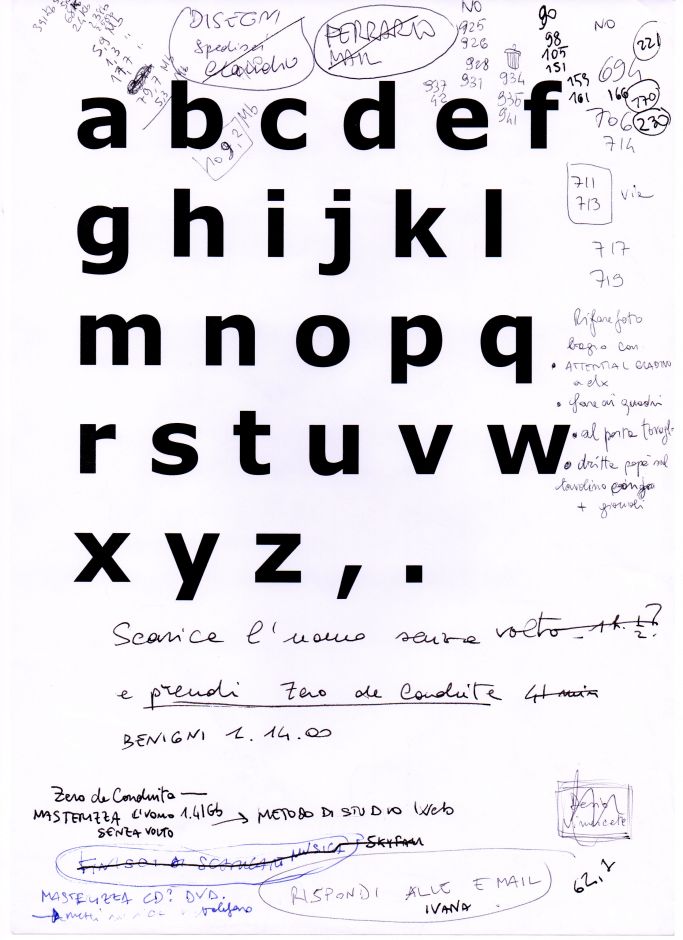 DISEGNI
Spedisci
Claudio
FERRARIO
MAIL
NO
925
926
928
931
937
42
934
935
941
90
98
105
151
159
161
NO
694
221
166
170
706
230
714
711
713
via
717
719
a b c d e f
g h i j k l
m n o p q
r s t u v w
x y z , .
Rifare foto
bagno con
• ATTENTI AL GRADINO
a dx
• fare ai quadri
• al porta
• dritta sul
tavolino
+
Scarica l'uomo senza volto
e prendi Zero de Conduite 41 min
BENIGNI 1.14.00
Zero de Conduite —
MASTERIZZA L'UOMO 1.41Gb → METODO DI STUDIO Web
SENZA VOLTO
FINISCI DI SCARICARE MUSICA SKYFALL
MASTERIZZA CD? DVD.
RISPONDI ALLE EMAIL
IVANA.
Design
Vimercate
62.2